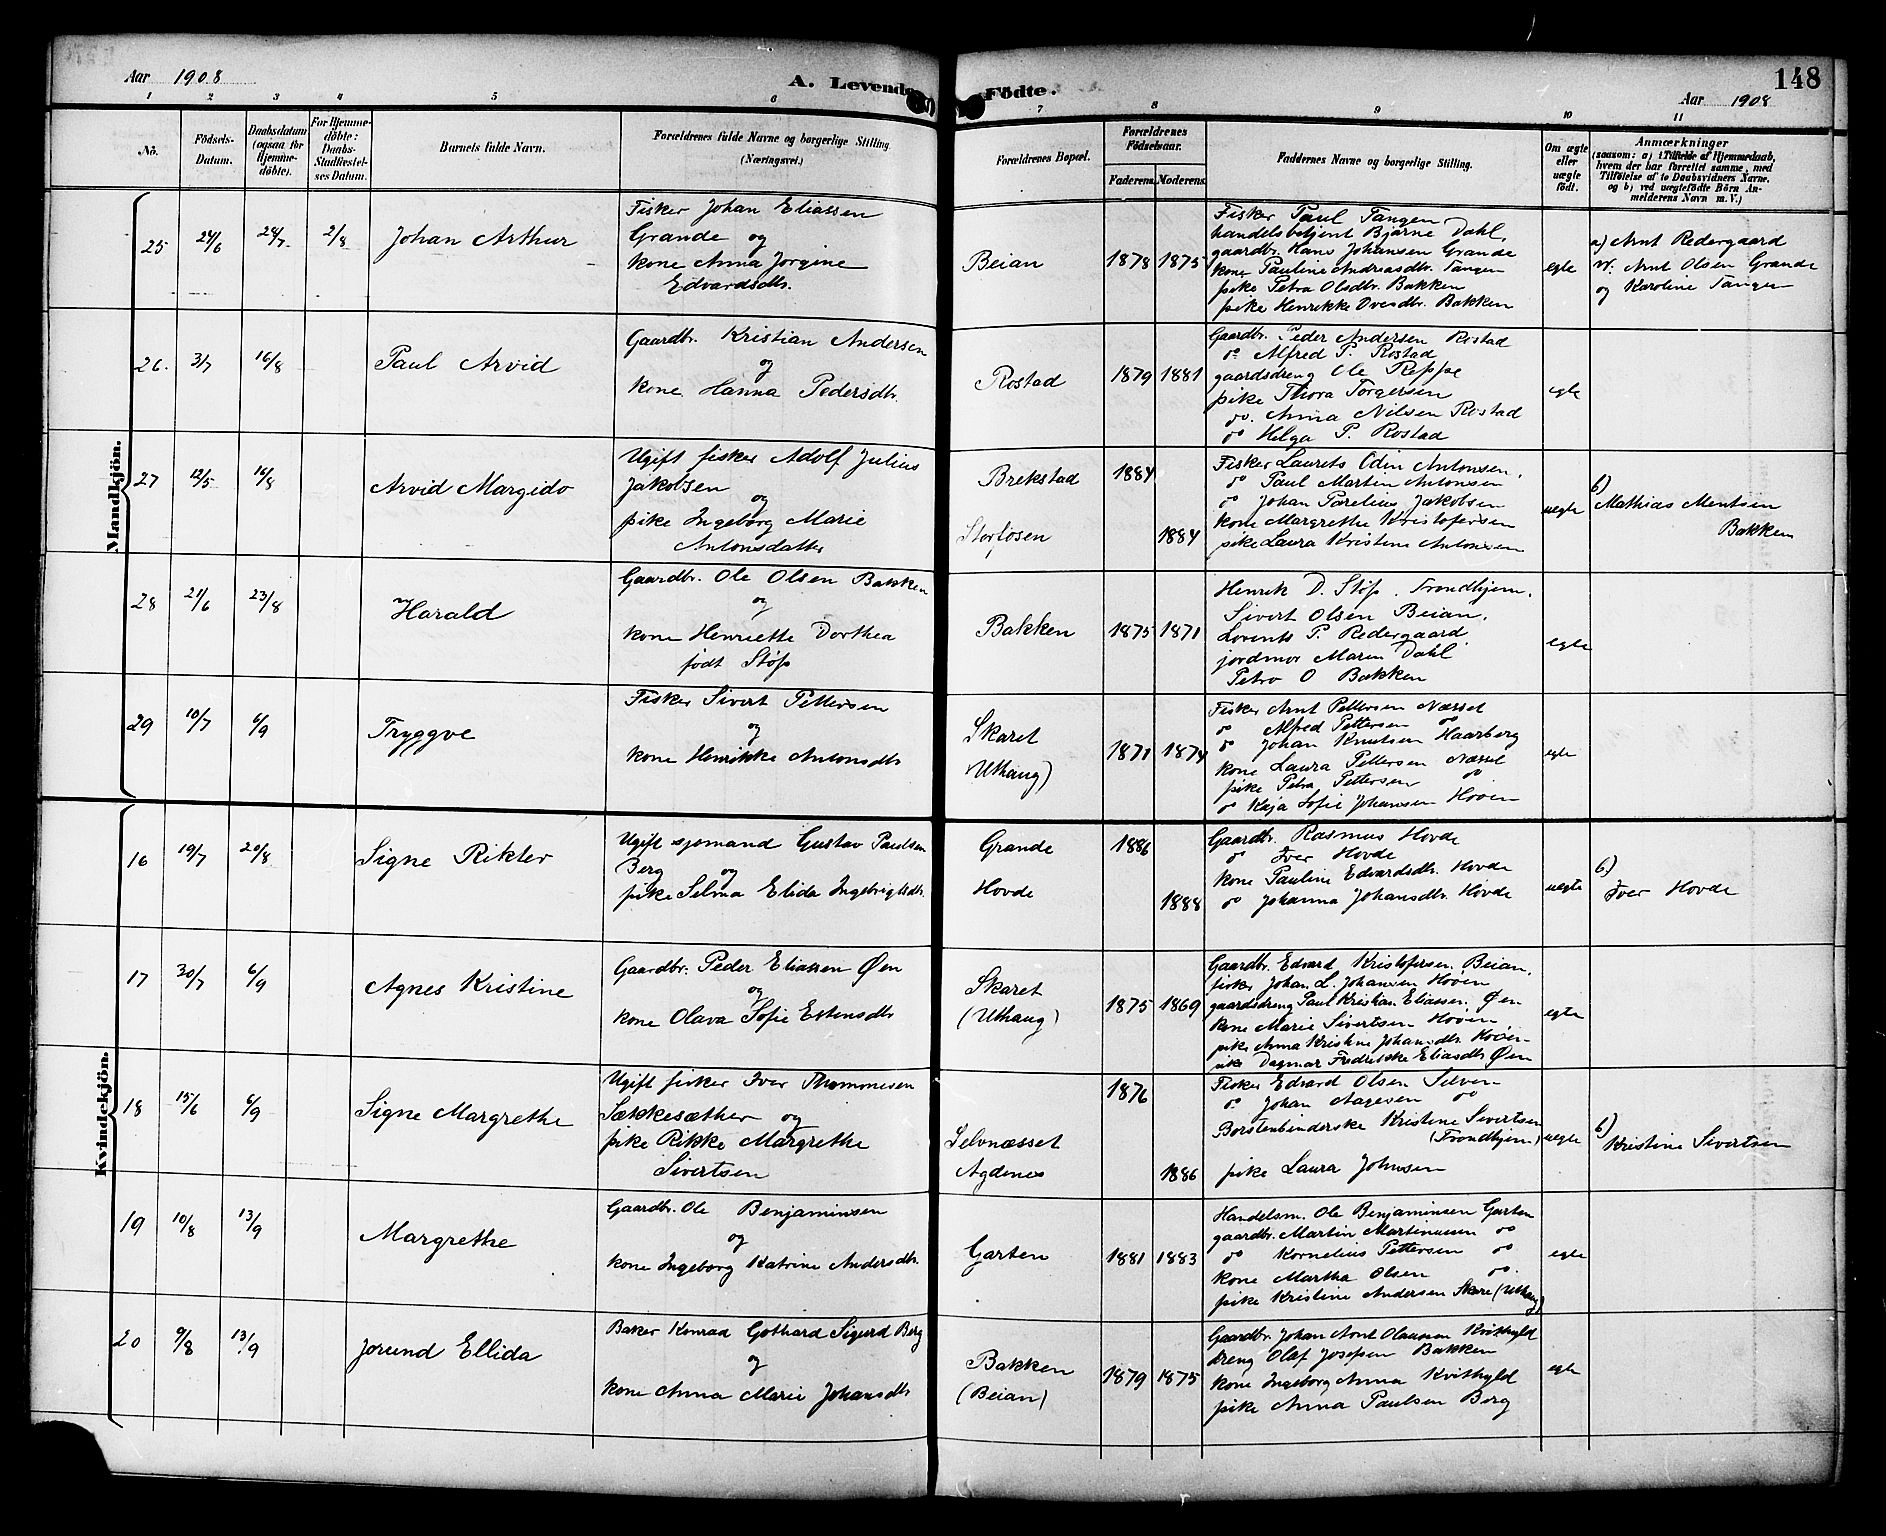 Aar 1908
A. Levende Födte.
148
Aar 1908
1 2 3 4 5 6 7 8 9 10 11
No.
Födsels-Datum.
Daabsdatum (ogsaa for Hjemme-döbte).
For Hjemme-döbte: Daabs-Stadfæstel-ses Datum.
Barnets fulde Navn.
Forældrenes fulde Navne og borgerlige Stilling.
(Næringsvei.)
Forældrenes Bopæl.
Forældrenes Födselsaar.
Faderens. Moderens.
Faddernes Navne og borgerlige Stilling.
Om ægte eller uægte födt.
Anmærkninger
(saasom: a) i Tilfælde af Hjemmedaab,
hvem der har forrettet samme, med
Tilföielse af to Daabsvidners Navne,
og b) ved uægtefödte Börn An-
melderens Navn m. V.)
Mandkjön.
25 24/6 24/7 2/8 Johan Arthur
Fisker Johan Eliassen
Grande og
kone Anna Jorgine
Edvardsdtr.
Beian 1878 1875
Fisker Paul Tangen,
handelsbetjent Bjarne Dahl,
gaardbr. Hans Johansen Grande
kone Pauline Andreasdtr. Tangen
pike Petra Olsdtr. Bakken
pike Henrikke Ovesdtr. Bakken
egte
a) Arnt Redergaard
v. Arnt Olsen Grande
og Karoline Tangen
26. 3/7 16/8 Paul Arvid
Gaardbr. Kristian Andersen
og
kone Hanna Pedersdtr.
Rostad 1879 1881
Gaardbr. Peder Andersen Rostad
do Alfred P. Rostad
gaardsdreng Ole Reppe
pike Thora Torgersen
do. Anna Nilsen Rostad
do Helga P. Rostad
egte
27 12/5 16/8 Arvid Margido
Ugift fisker Adolf Julius
Jakobsen
og
pike Ingeborg Marie
Antonsdatter
Brekstad 1884
Storfosen 1884
Fisker Laurits Odin Antonsen,
do Paul Martin Antonsen
do Johan Parelius Jakobsen
kone Margrethe Kristofersen
pike Laura Kristine Antonsen
uegte
b)
Mathias Mentsen
Bakken
28 21/6 23/8 Harald
Gaardbr. Ole Olsen Bakken
og
kone Henriette Dorthea
født Støp
Bakken 1875 1871
Henrik D. Støp. Trondhjem,
Sivert Olsen Beian,
Lorents P. Redergaard,
jordmor Maren Dahl
Petra O Bakken
egte
29 10/7 6/9 Tryggve
Fisker Sivert Pettersen
og
kone Henrikke Antonsdtr
Skaret
(Uthaug) 1871 1874
Fisker Arnt Pettersen Næsset
do Alfred Pettersen do
do Johan Knutsen Haarberg
kone Laura Pettersen Næsset
pike Petra Pettersen do
do Kaja Sofie Johansen Høien
egte
Kvindekjön.
16 19/7 20/8 Signe Rikter
Ugift sjømand Gustav Paulsen
Berg og
pike Selma Elida Ingebrigtsdtr.
Grande 1886
Hovde 1888
Gaardbr. Rasmus Hovde
do Iver Hovde
kone Pauline Edvardsdtr. Hovde
do Johanna Johansdtr. Hovde
uegte
b)
Iver Hovde
17 30/7 6/9 Agnes Kristine
Gaardbr. Peder Eliassen Øen
og
kone Olava Sofie Estensdtr
Skaret
(Uthaug) 1875 1869
Gaardbr. Edvard Kristofersen. Beian,
fisker Johan L. Johansen Høien
gaardsdreng Paul Kristian Eliassen. Øen
kone Marie Sivertsen Høien
pike Anna Kristine Johansdtr. Høien
pike Dagmar Fredrikke Eliasdtr Øen
egte
18 15/6 6/9 Signe Margrethe
Ugift fisker Iver Thomonesen
Sækkesæther og
pike Rikke Margrethe
Sivertsen
1876
Selvnæsset
Agdenes 1886
Fisker Edvard Olsen Selven
do Johan Aagesen do
Børstenbinderske Kristine Sivertsen
(Trondhjem)
pike Laura Johnsen
uegte
b)
Kristine Sivertsen
19 10/8 13/9 Margrethe
Gaardbr. Ole Benjaminsen
og
kone Ingeborg Katrine Andersdtr.
Garten 1881 1883
Handelsm. Ole Benjaminsen Garten
gaardbr. Martin Martinussen do
do Kornelius Pettersen do
kone Martha Olsen do.
pike Kristine Andersen Skare (Uthaug)
egte
20 9/8 13/9 Jorund Ellida
Baker Konrad Gothard Sigurd Berg
og
kone Anna Marie Johansdtr
Bakken
(Beian) 1879 1875
Gaardbr. Johan Arnt Olaussen Kvithyld
dreng Olaf Josefsen Bakken
kone Ingeborg Anna Kvithyld
pike Anna Paulsen Berg
egte